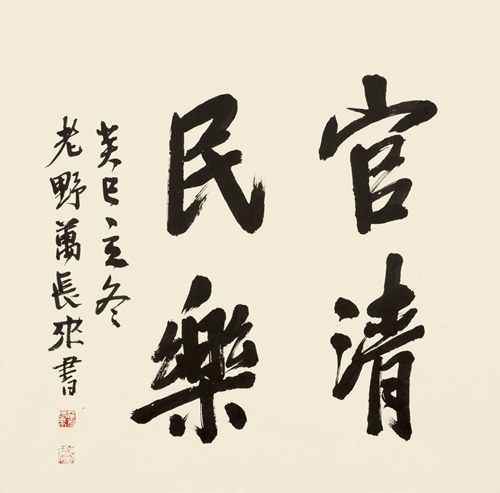 官清
民樂
癸巳立冬
老野萬長來書